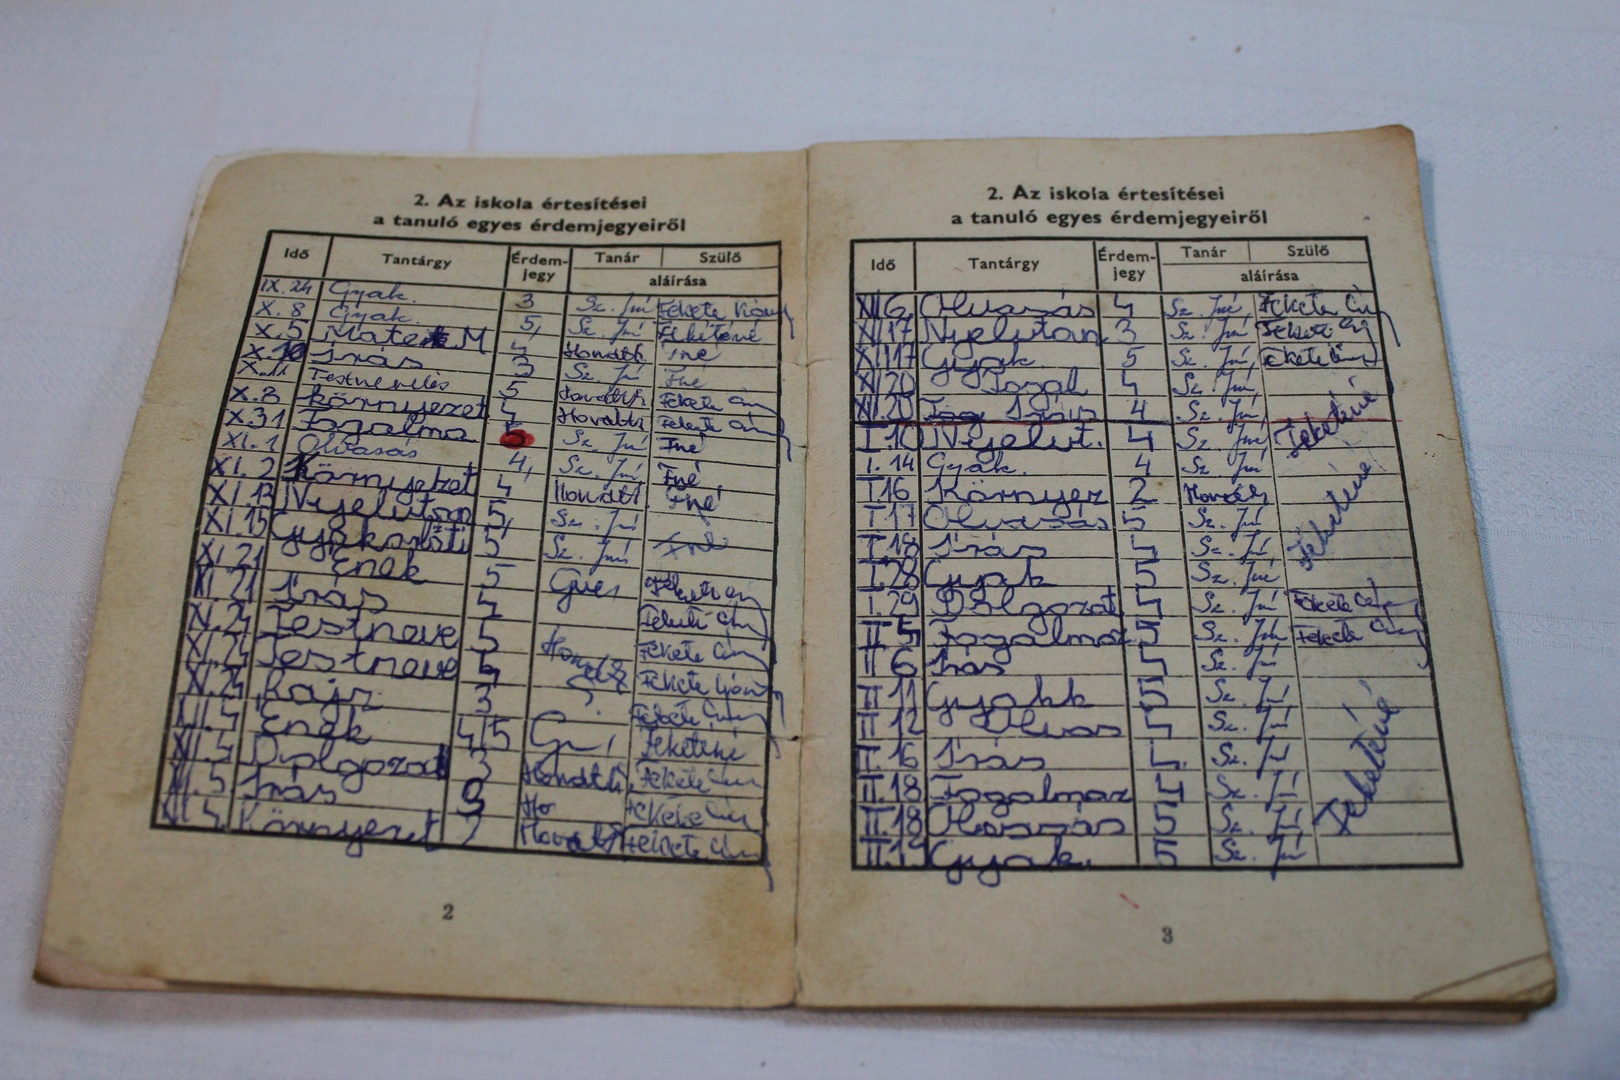 2. Az iskola értesítései
a tanuló egyes érdemjegyeiről
Idő Tantárgy Érdem-jegy Tanár Szülő
aláírása
IX. 24 Gyak. 3 Sz. Jné Fekete
X. 8 Gyak. 5, Sz. Jné Feketéné
X. 5 Matek M 4 Horváth Fné
X. 10 Írás 3 Sz. Jné Fné
X. 11 Testnevelés 5 Horváth Fekete
X. 8 környezet 4 Horváth Fekete
X. 31 Fogalma 5 Sz. Jné Fné
XI. 1 Olvasás 4, Sz. Jné Fné
XI. 2 Környezet 4 Horváth Fné
XI. 13 Nyelvtan 5, Sz. Jné Fné
XI. 15 Gyakorlati 5, Sz. Jné
XI. 21 Ének 5 Fekete
XI. 21 Írás 4 Fekete
XI. 24 Testneve 5 Fekete
XI. 24 Testneve Fekete
XI. 24 Rajz 3 Fekete
XII. 5 Ének 4/5 Feketéné
XII. 5 Dolgozat 3 Horváth Fekete
XII. 5 Írás Ho Fekete
Környezet Horváth Fekete
2
2. Az iskola értesítései
a tanuló egyes érdemjegyeiről
Idő Tantárgy Érdem-jegy Tanár Szülő
aláírása
XII 6 Olvasás 4 Sz. Jné Fekete
XII 17 Nyelvtan 3 Sz. Jné Fekete
XII 17 Gyak 5 Sz. Jné Fekete
XII 20 Fogal 4 Sz. Jné
XII. 20 Írás 4 Sz. Jné Feketéné
I. 10 Nyelvt. 4 Sz. Jné
I. 14 Gyak. 4 Sz. Jné
I. 16 Környez 2 Horváth Feketéné
I. 17 Olvasás 5 Sz. Jné
I. 18 Írás 4 Sz. Jné
I. 28 Gyak 5 Sz. Jné
I. 29 Dolgozat 4 Sz. Jné Fekete
II 5 Fogalmaz 5 Sz. Jné Fekete
II 6 Írás 4 Sz. Jné
II 11 Gyakk 5 Sz. Jné
II 12 Olvas 4 Sz. Jné
II. 16 Írás 4. Sz. Jné Feketéné
II. 18 Fogalmaz 4 Sz. Jné
II. 18 5 Sz. Jné
Gyak. 5 Sz. Jné
3